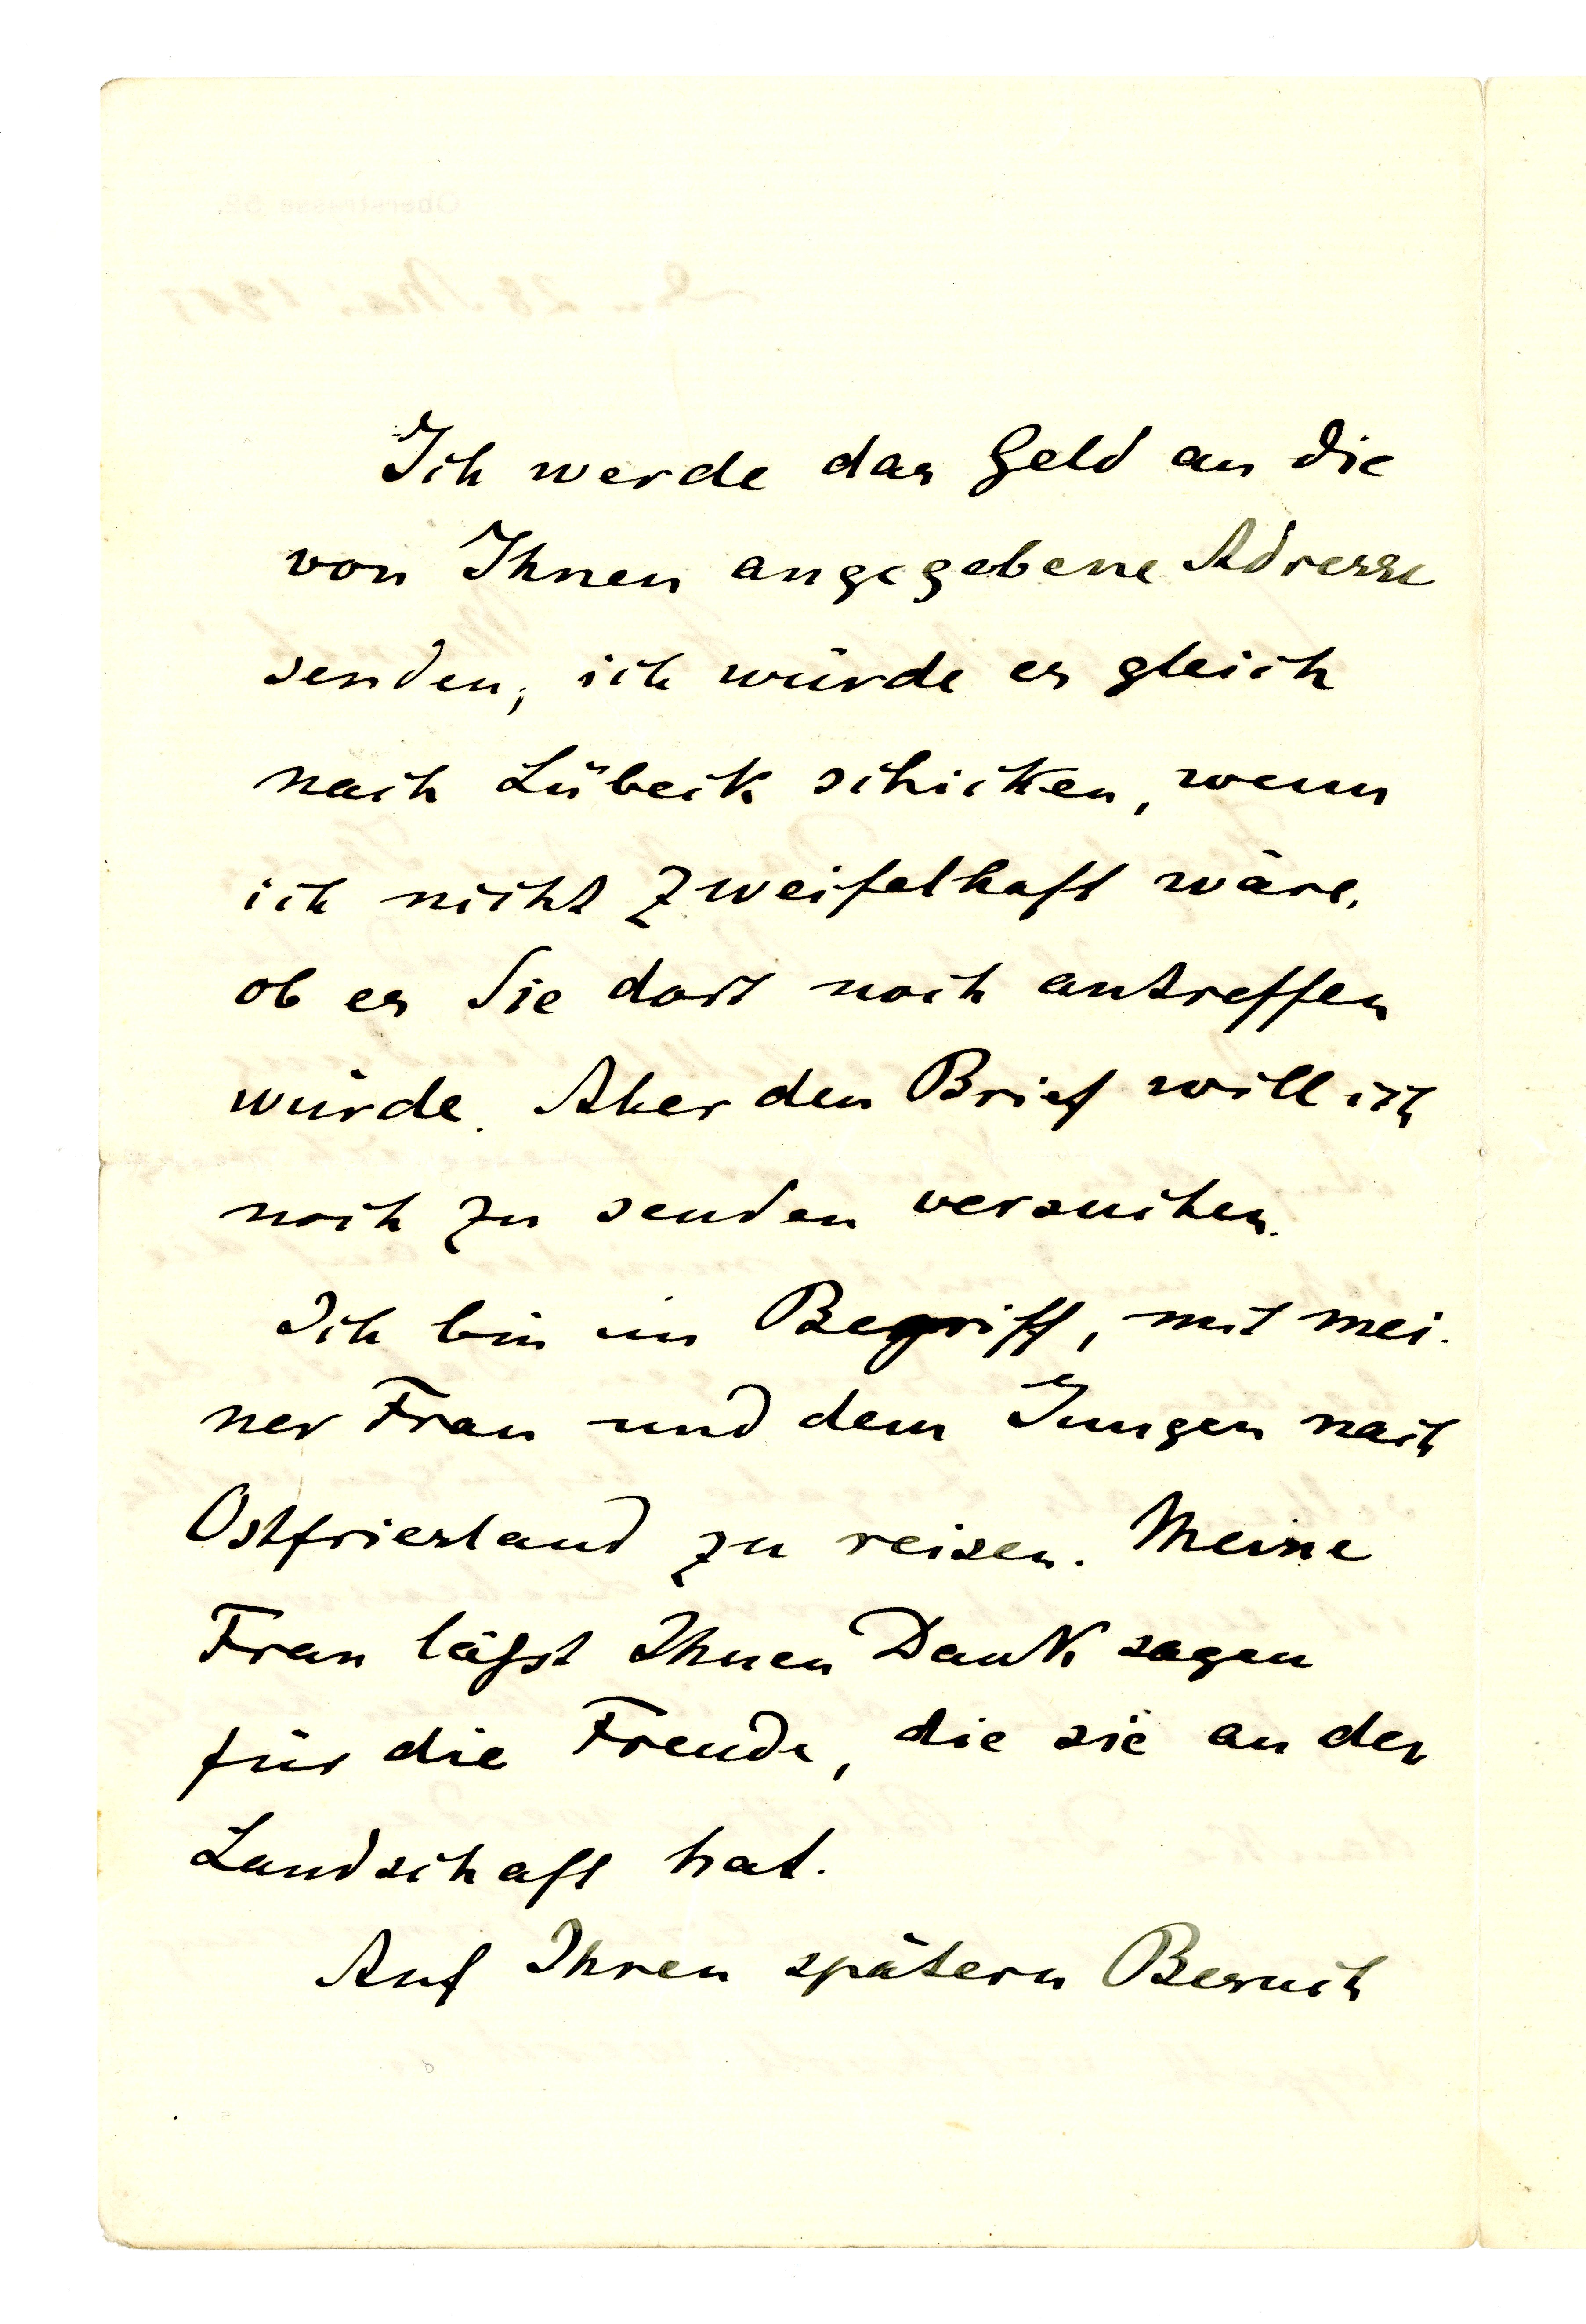 Ich werde das Geld an die
von Ihnen angegebene Adresse
senden, ich würde es gleich
nach Lübeck schicken, wenn
ich nicht zweifelhaft wäre,
ob es Sie dort noch antreffen
würde. Aber den Brief will ich
noch zu senden versuchen.
Ich bin im Begriff, mit mei-
ner Frau und dem Jungen nach
Ostfriesland zu reisen. Meine
Frau läßt Ihnen Dank sagen
für die Freude, die sie an der
Landschaft hat.
Auf Ihren spätern Besuch